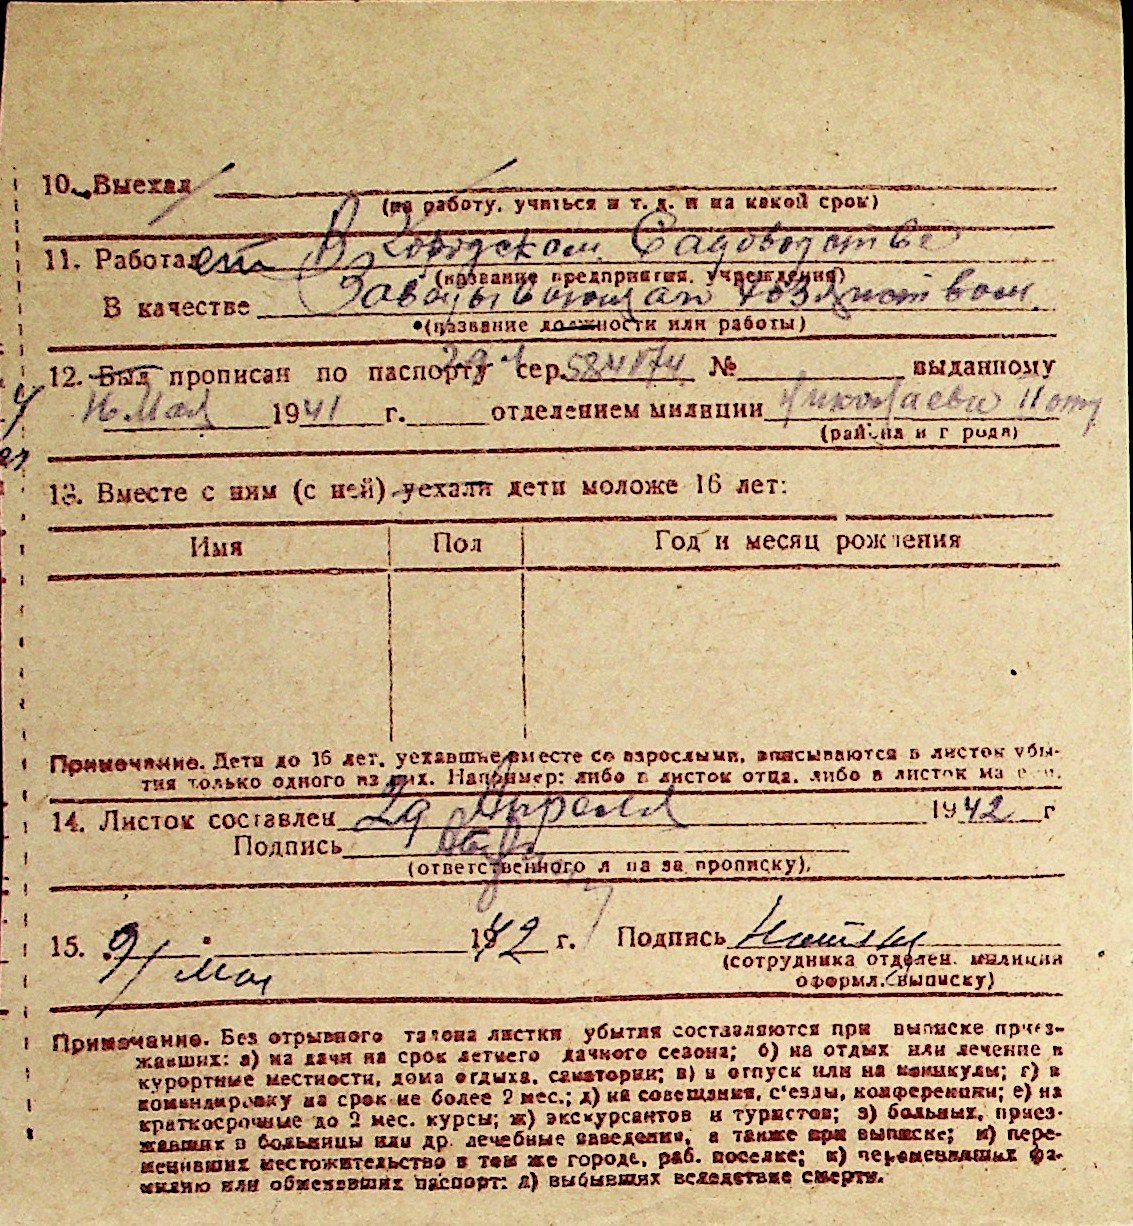 10. Выехал
(на работу, учиться и т. д. и на какой срок)
11. Работает В Городском Садоводстве
(название предприятия, учреждения)
В качестве Заведывающая хозяйством
(название должности или работы)
12. Был прописан по паспорту сер. 584174 № выданному
16 Мая 1941 г. отделением милиции Николаева
(района и г рода)
13. Вместе с ним (с ней) уехали дети моложе 16 лет:
Имя Пол Год и месяц рождения
Примечание. Дети до 16 лет, уехавшие вместе со взрослыми, вписываются в листок убы-
тия только одного из них. Например: либо в листок отца, либо в листок ма
14. Листок составлен 29 Апреля 1942 г
Подпись
(ответственного л ца за прописку),
15. 9/ Мая 1942 г. Подпись
(сотрудника отделен. милиции
оформл. выписку)
Примечание. Без отрывного талона листки убытия составляются при выписке приез-
жавших: а) на дачи на срок летнего дачного сезона; б) на отдых или лечение в
курортные местности, дома отдыха, санатории; в) в отпуск или на каникулы; г) в
командировку на срок не более 2 мес.; д) на совещания, с'езды, конференции; е) на
краткосрочные до 2 мес. курсы; ж) экскурсантов и туристов; з) больных, приез-
жавших в больницы или др. лечебные заведения, а также при выписке; и) пере-
менивших местожительство в том же городе, раб. поселке; к) переменивших фа-
милию или обменявших паспорт; л) выбывших вследствие смерти.